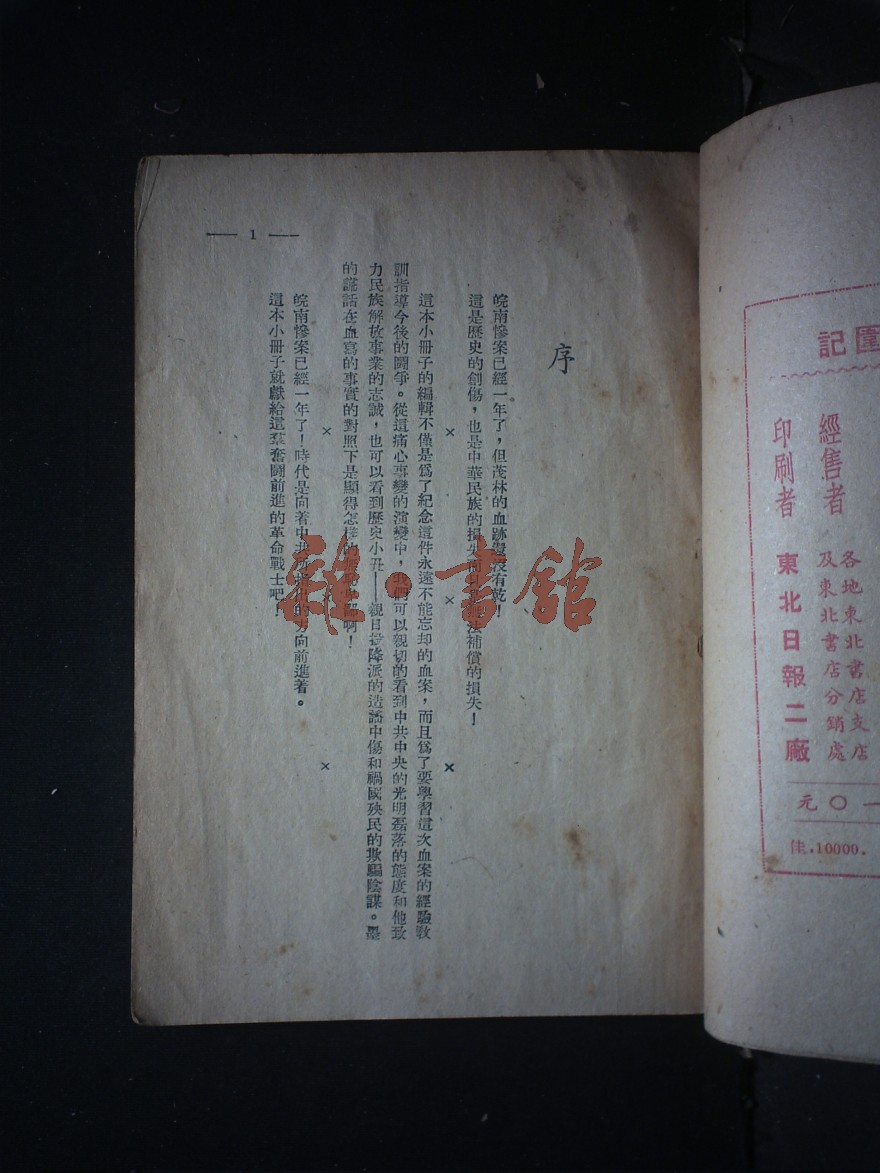 序
皖南慘案已經一年了，但茂林的血跡還沒有乾！
這是歷史的創傷，也是中華民族的損失而且是無法補償的損失！
× × ×
這本小冊子的編輯不僅是爲了紀念這件永遠不能忘却的血案，而且爲了要學習這次血案的經驗教
訓指導今後的鬪爭。從這痛心事變的演變中，我們可以親切的看到中共中央的光明磊落的態度和他致
力民族解放事業的志誠，也可以看到歷史小丑——親日投降派的造謠中傷和禍國殃民的欺騙陰謀。墨
的謊話在血寫的事實的對照下是顯得怎樣的
啊！
× × ×
皖南慘案已經一年了！時代是向着中共所指出的方向前進着。
這本小冊子就獻給這羣奮鬪前進的革命戰士吧！
— 1 —
雜·書館
記
經售者 各地東北書店支店
及東北書店分銷處
印刷者 東北日報二廠
一〇元
佳.10000.